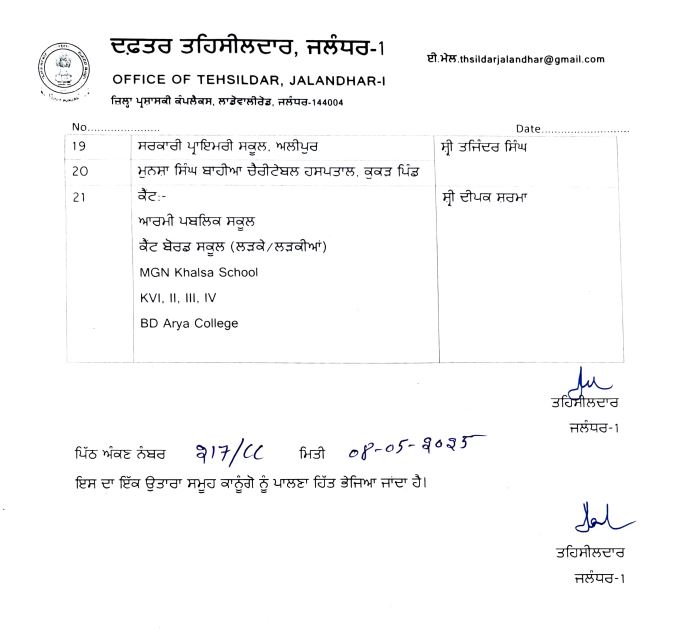 ਦਫ਼ਤਰ ਤਹਿਸੀਲਦਾਰ, ਜਲੰਧਰ-1
ਈ.ਮੇਲ.thsildarjalandhar@gmail.com
OFFICE OF TEHSILDAR, JALANDHAR-I
ਜ਼ਿਲ੍ਹਾ ਪ੍ਰਸ਼ਾਸਕੀ ਕੰਪਲੈਕਸ, ਲਾਡੋਵਾਲੀਰੋਡ, ਜਲੰਧਰ-144004
No..................... Date.........................
19 ਸਰਕਾਰੀ ਪ੍ਰਾਇਮਰੀ ਸਕੂਲ, ਅਲੀਪੁਰ ਸ੍ਰੀ ਤਜਿੰਦਰ ਸਿੰਘ
20 ਮੁਨਸਾ ਸਿੰਘ ਬਾਹੀਆ ਚੈਰੀਟੇਬਲ ਹਸਪਤਾਲ, ਕੁਕੜ ਪਿੰਡ
21 ਕੈਂਟ:- ਸ੍ਰੀ ਦੀਪਕ ਸ਼ਰਮਾ
ਆਰਮੀ ਪਬਲਿਕ ਸਕੂਲ
ਕੈਂਟ ਬੋਰਡ ਸਕੂਲ (ਲੜਕੇ/ਲੜਕੀਆਂ)
MGN Khalsa School
KVI, II, III, IV
BD Arya College
ਤਹਿਸੀਲਦਾਰ
ਜਲੰਧਰ-1
ਪਿੱਠ ਅੰਕਣ ਨੰਬਰ 217/CC ਮਿਤੀ 08-05-2025
ਇਸ ਦਾ ਇੱਕ ਉਤਾਰਾ ਸਮੂਹ ਕਾਨੂੰਗੋ ਨੂੰ ਪਾਲਣਾ ਹਿੱਤ ਭੇਜਿਆ ਜਾਂਦਾ ਹੈ।
ਤਹਿਸੀਲਦਾਰ
ਜਲੰਧਰ-1